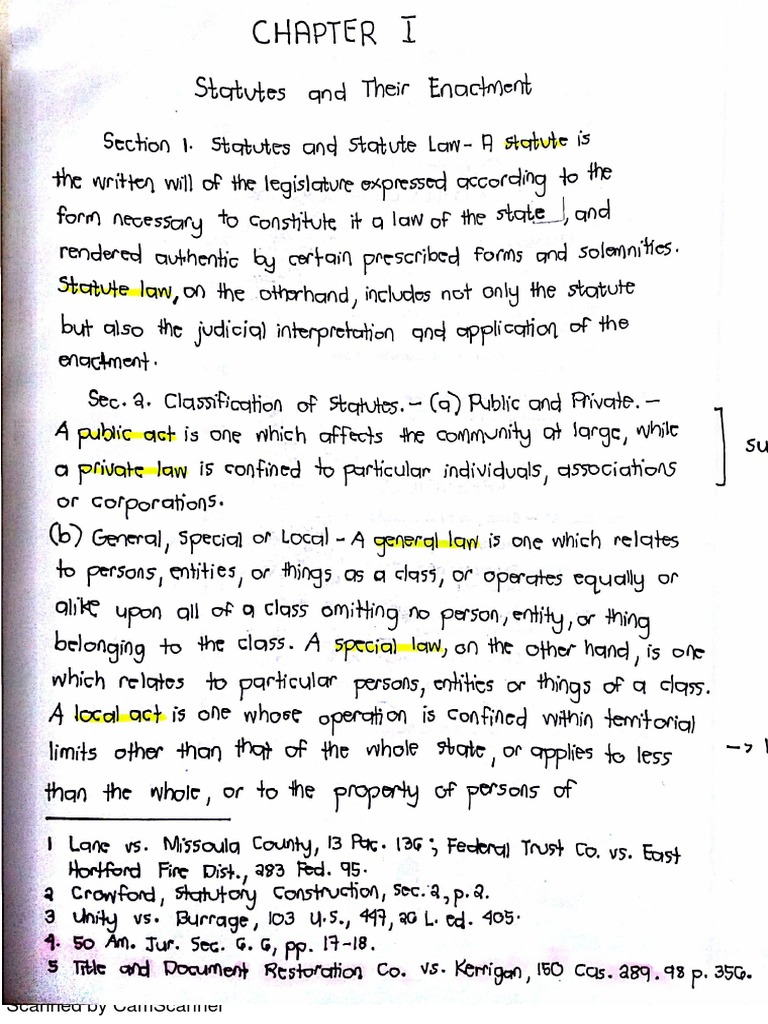 CHAPTER I
Statutes and Their Enactment
Section 1. Statutes and Statute Law- A statute is
the written will of the legislature expressed according to the
form necessary to constitute it a law of the state, and
rendered authentic by certain prescribed forms and solemnities.
Statute law, on the otherhand, includes not only the statute
but also the judicial interpretation and application of the
enactment.
Sec. 2. Classification of Statutes.- (a) Public and Private.-
A public act is one which affects the community at large, while
a private law is confined to particular individuals, associations
or corporations.
(b) General, Special or Local - A general law is one which relates
to persons, entities, or things as a class, or operates equally or
alike upon all of a class omitting no person, entity, or thing
belonging to the class. A special law, on the other hand, is one
which relates to particular persons, entities or things of a class.
A local act is one whose operation is confined within territorial
limits other than that of the whole state, or applies to less
than the whole, or to the property of persons of
1 Lane vs. Missoula County, 13 Pac. 136; Federal Trust Co. vs. East
Hartford Fire Dist., 283 Fed. 95.
2 Crawford, Statutory Construction, Sec. 2, p. 2.
3 Unity vs. Burrage, 103 U.S., 447, 26 L. ed. 405.
4. 50 Am. Jur. Sec. 6. 6, pp. 17-18.
5 Title and Document Restoration Co. vs. Kerrigan, 150 Cas. 289. 98 p. 356.
Scanned by CamScanner